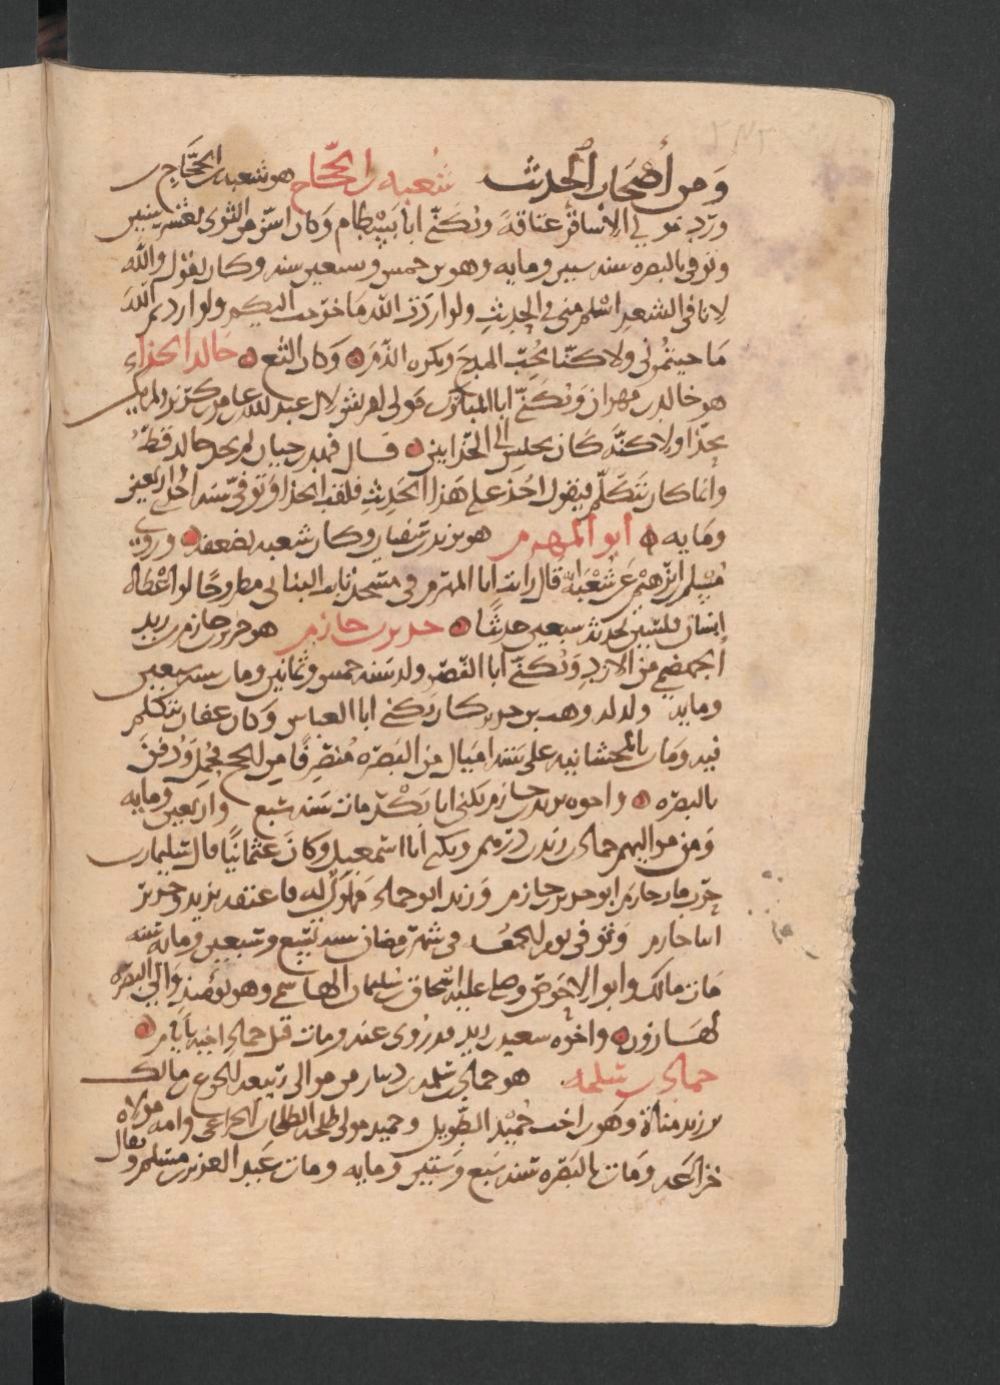 ومن أصحاب الحديث شعبه بن الحجاج هو شعبه بن الحجاج بن
ورد مولي الاشاقر عتاقة ويكنى ابا بسطام وكان اسن من الثوري بعشر سنين
وتوفي بالبصره سنه ستين ومايه وهو بن خمس وسبعين سنه وكان يقول والله
لانا في الشعر اسلم مني في الحديث ولو اردت الله ما خرجت اليكم ولو اردتم الله
ما جيتموني ولاكنا نحب المدح ونكره الذم وكان الثغ خالد الحذاء
هو خالد بن مهران ويكنى ابا المبارك مولى لقريش لال عبد الله بن عامر بن كريز ولم يكن
بحذا ولاكنه كان يجلس الى الحذايين قال فهد بن حيان لم يحذ خالد قط
وانما كان يتكلم فيقول احذ على هذا الحديث فلقب الحذا وتوفي سنه احدى واربعين
ومايه أبو المهزم هو يزيد بن سفيان وكان شعبه يضعفه وروى
مسلم بن ابرهيم عن شعبة قال رايت ابا المهزم في مسجد ثابت البناني مطروحا لو اعطاه
انسان فلسين لحدثه سبعين حديثا جرير بن حازم هو جرير بن حازم بن زيد
الجهضمي من الازد ويكنى ابا النضر ولد سنه خمس وثمانين ومات سنه سبعين
ومايه ولد له وهب بن جرير كان يكنى ابا العباس وكان عفان يتكلم
فيه ومات بالمنجشانيه على ستة اميال من البصره منصرفا من الحج فحمل ودفن
بالبصره واخوه يزيد بن حازم يكنى ابا بكر مات سنه سبع واربعين ومايه
ومن مواليهم حماد بن زيد بن درهم ويكنى أبا اسمعيل وكان عثمانيا قال سليمان بن
حرب مات حازم ابو جرير بن حازم وزيد ابو حماد مملوك له فاعتقه يزيد وجرير
ابنا حازم وتوفي يوم الجمعه في شهر رمضان سنه تسع وسبعين ومايه سنه
مات مالك وابو الاحوص وصلى عليه اسحاق بن سليمان الهاشمي وهو يومئذ والي البصره
لهارون واخوه سعيد بن زيد قد روى عنه ومات قبل حماد اخيه بايام
حماد بن سلمه هو حماد بن سلمه بن دينار من موالى ربيعه الجوع بن مالك
بن زيد مناة وهو بن اخت حميد الطويل وحميد مولى طلحه الطلحات الخزاعي وامه مولاه
خزاعه ومات بالبصره سنه سبع وستين ومايه ومات عبد العزيز بن مسلم ويقال